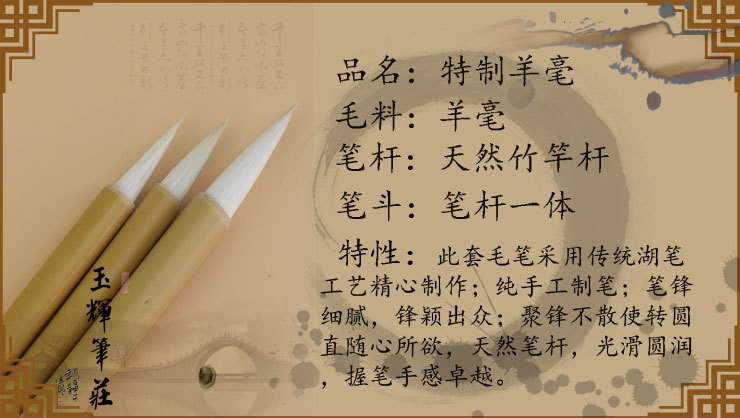 品名：特制羊毫
毛料：羊毫
笔杆：天然竹竿杆
笔斗：笔杆一体
特性：此套毛笔采用传统湖笔
工艺精心制作；纯手工制笔；笔锋
细腻，锋颖出众；聚锋不散使转圆
直随心所欲，天然笔杆，光滑圆润
，握笔手感卓越。
玉輝筆莊